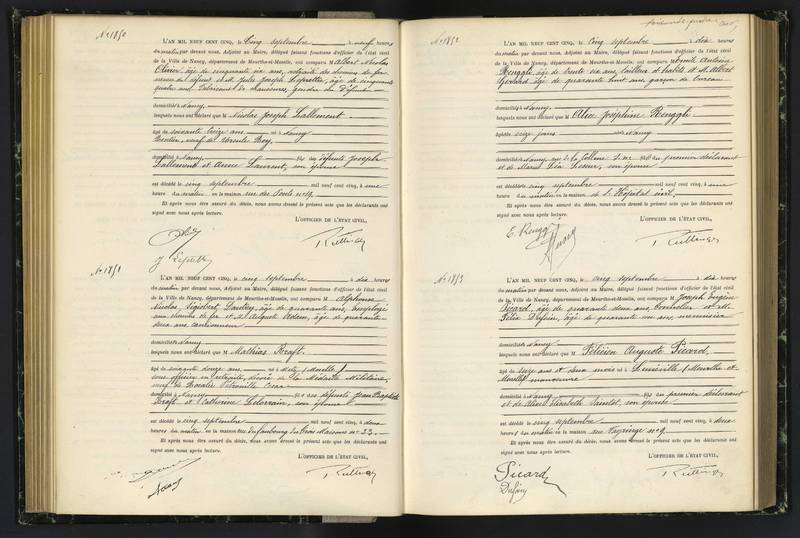 No 1850
L'AN MIL NEUF CENT CINQ, le Cinq septembre à neuf heures
du matin par devant nous, Adjoint au Maire, délégué faisant fonctions d'officier de l'état civil
de la Ville de Nancy, département de Meurthe-et-Moselle, ont comparu M Albert Nicolas
âgé de cinquante six ans, retraité des chemins de fer
du défunt et M. Jules Joseph Lepette, âgé de cinquante
quatre ans, fabricant de chaussures, gendre du défunt
domiciliés à Nancy
lesquels nous ont déclaré que M Nicolas Joseph Lallement
âgé de soixante treize ans né à Nancy
Rentier, veuf de Ursule Roy,
domicilié à Nancy fils des défunts Joseph
Lallement et Anne Laurent, son épouse
est décédé le cinq septembre mil neuf cent cinq, à une
heure du matin en la maison rue des Ponts no 19.
Et après nous être assuré du décès, nous avons dressé le présent acte que les déclarants ont
signé avec nous après lecture.
L'OFFICIER DE L'ÉTAT CIVIL,
No 1851
L'AN MIL NEUF CENT CINQ, le cinq septembre à dix heures
du matin par devant nous, Adjoint au Maire, délégué faisant fonctions d'officier de l'état civil
de la Ville de Nancy, département de Meurthe-et-Moselle, ont comparu M Alphonse
Nicolas âgé de quarante ans, employé
aux chemins de fer et M. Auguste âgé de quarante
deux ans cantonnier
domiciliés à Nancy
lesquels nous ont déclaré que M Mathias Kraft.
âgé de soixante douze ans né à Metz (Moselle)
sous officier en retraite, décoré de la Médaille Militaire,
veuf de Rosalie
domicilié à Nancy fils des défunts Jean Baptiste
Kraft et Catherine Lelorrain, son épouse
est décédé le cinq septembre mil neuf cent cinq, à deux
heures du matin en la maison rue du faubourg des Trois Maisons no 23.
Et après nous être assuré du décès, nous avons dressé le présent acte que les déclarants ont
signé avec nous après lecture.
L'OFFICIER DE L'ÉTAT CIVIL,
No 1852
L'AN MIL NEUF CENT CINQ, le cinq septembre à dix heures
du matin par devant nous, Adjoint au Maire, délégué faisant fonctions d'officier de l'état civil
de la Ville de Nancy, département de Meurthe-et-Moselle, ont comparu M Emile Antoine
Renggli, âge de trente six ans, tailleur d'habits et M. Albert
âge de quarante huit ans, garçon de bureau
domiciliés à Nancy
lesquels nous ont déclaré que M Alice Joséphine Renggli
âgée de seize jours née à Nancy
domiciliée à Nancy rue de la Colline fille du premier déclarant
et de Marie son épouse
est décédée le cinq septembre mil neuf cent cinq, à une
heure du matin en la maison de l'Hôpital civil,
Et après nous être assuré du décès, nous avons dressé le présent acte que les déclarants ont
signé avec nous après lecture.
L'OFFICIER DE L'ÉTAT CIVIL,
E. Renggli
No 1853
L'AN MIL NEUF CENT CINQ, le cinq septembre à dix heures
du matin par devant nous, Adjoint au Maire, délégué faisant fonctions d'officier de l'état civil
de la Ville de Nancy, département de Meurthe-et-Moselle, ont comparu M Joseph Eugène
Picard, âgé de quarante deux ans, Controleur et M.
âgé de quarante un ans, menuisier
domiciliés à Nancy
lesquels nous ont déclaré que M Félicien Auguste Picard,
âgé de seize ans et deux mois né à Lunéville (Meurthe et
Moselle) manœuvre
domicilié à Nancy fils du premier déclarant
et de Elisabeth son épouse
est décédé le cinq septembre mil neuf cent cinq, à deux
heures du matin en la maison rue no 9.
Et après nous être assuré du décès, nous avons dressé le présent acte que les déclarants ont
signé avec nous après lecture.
L'OFFICIER DE L'ÉTAT CIVIL,
Picard